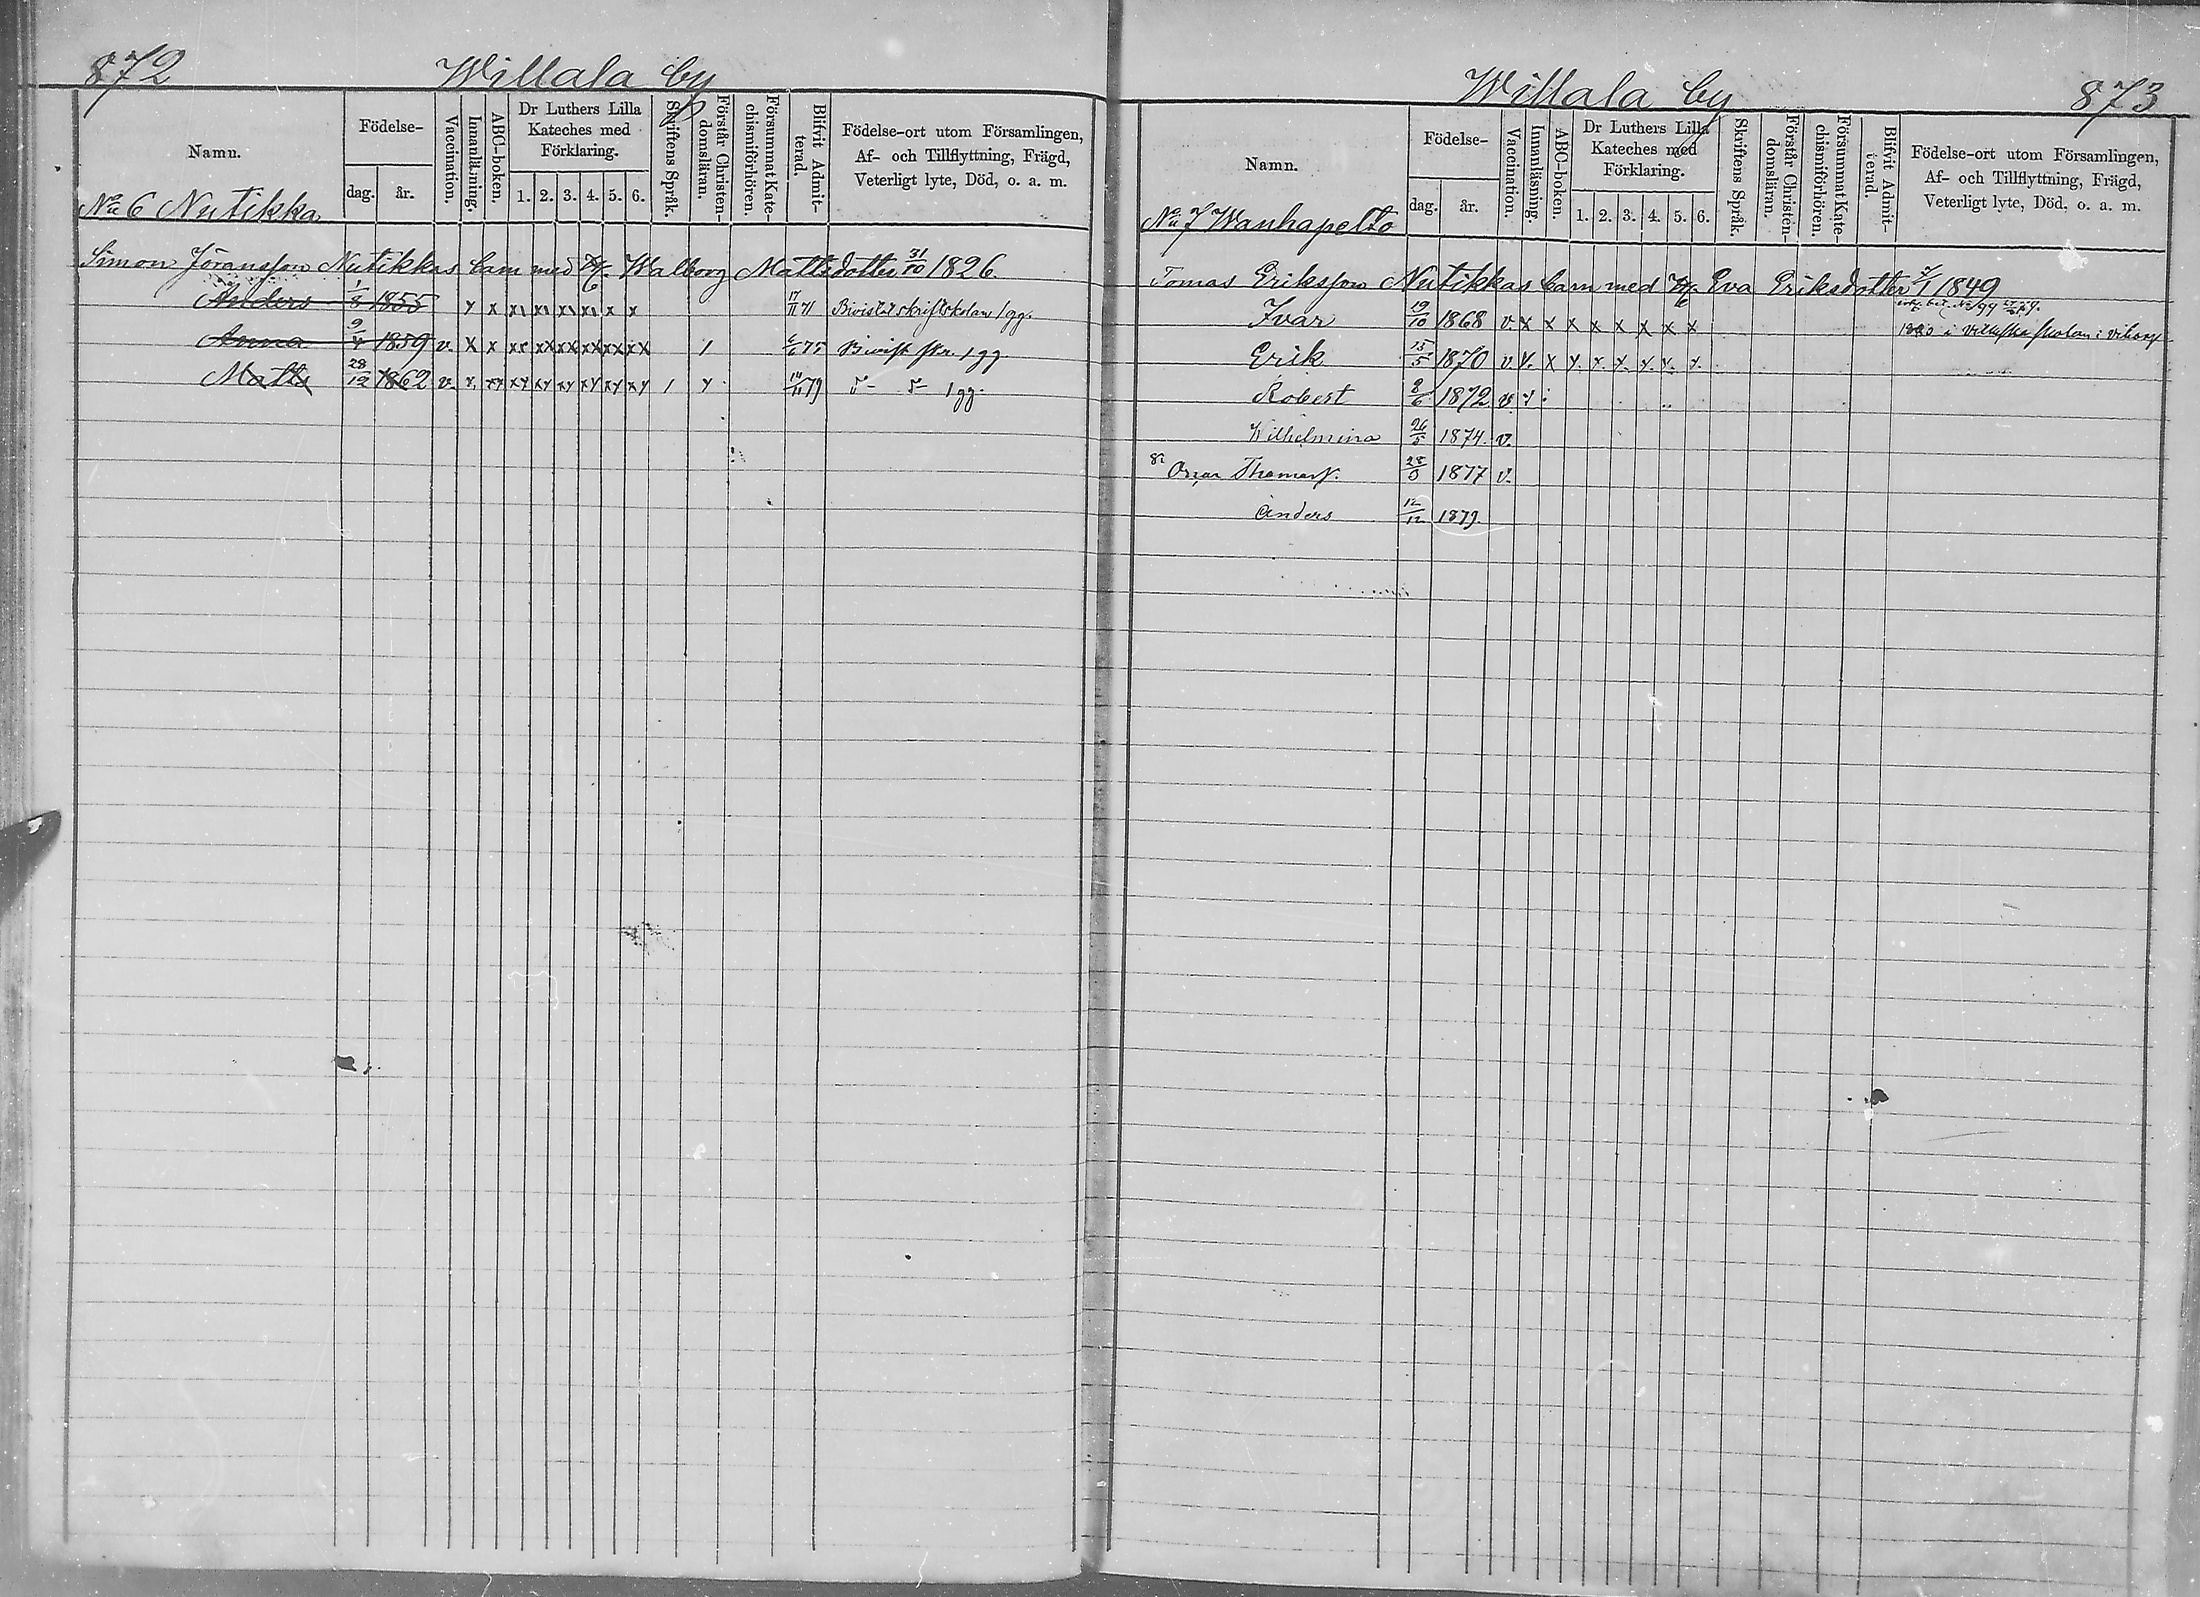 872
Willala by
Namn.
Födelse-
dag. år.
Vaccination.
Innanläsning.
ABC-boken.
Dr Luthers Lilla Kateches med Förklaring.
1. 2. 3. 4. 5. 6.
Skriftens Språk.
Förstår Christen-domsläran.
Försummat Kate-chismiförhören.
Blifvit Admit-terad.
Födelse-ort utom Församlingen,
Af- och Tillflyttning, Frägd,
Veterligt lyte, Död, o. a. m.
No 6 Nutikka
Simon Jöransson Nutikkas barn med Walborg Mattsdotter 31/10 1826.
Anders 1/8 1855 x x x x x x x x 17/11 71 Bivistat skriftskolan 1 gg.
Anna 9/4 1859 v. x x x x xx xx xx xx xx 1 75 Bivist skr. 1 gg
Matts 28/12 1862 v. x. xx xx xx xx xx xx xx 1 x 79 1 gg.
Willala by
873
Namn.
Födelse-
dag. år.
Vaccination.
Innanläsning.
ABC-boken.
Dr Luthers Lilla Kateches med Förklaring.
1. 2. 3. 4. 5. 6.
Skriftens Språk.
Förstår Christen-domsläran.
Försummat Kate-chismiförhören.
Blifvit Admit-terad.
Födelse-ort utom Församlingen,
Af- och Tillflyttning, Frägd,
Veterligt lyte, Död, o. a. m.
No 7 Wanhapelto
Tomas Eriksson Nutikkas barn med Eva Eriksdotter 1849
Ivar 19/10 1868 v. x x x x x x x x
Erik 15/5 1870 v. x. x x. x. x. x. x. x.
Robert 1872 v.
Wilhelmina 26/5 1874. v.
Oscar Thomass. 28/3 1877 v.
Anders 12/12 1879.